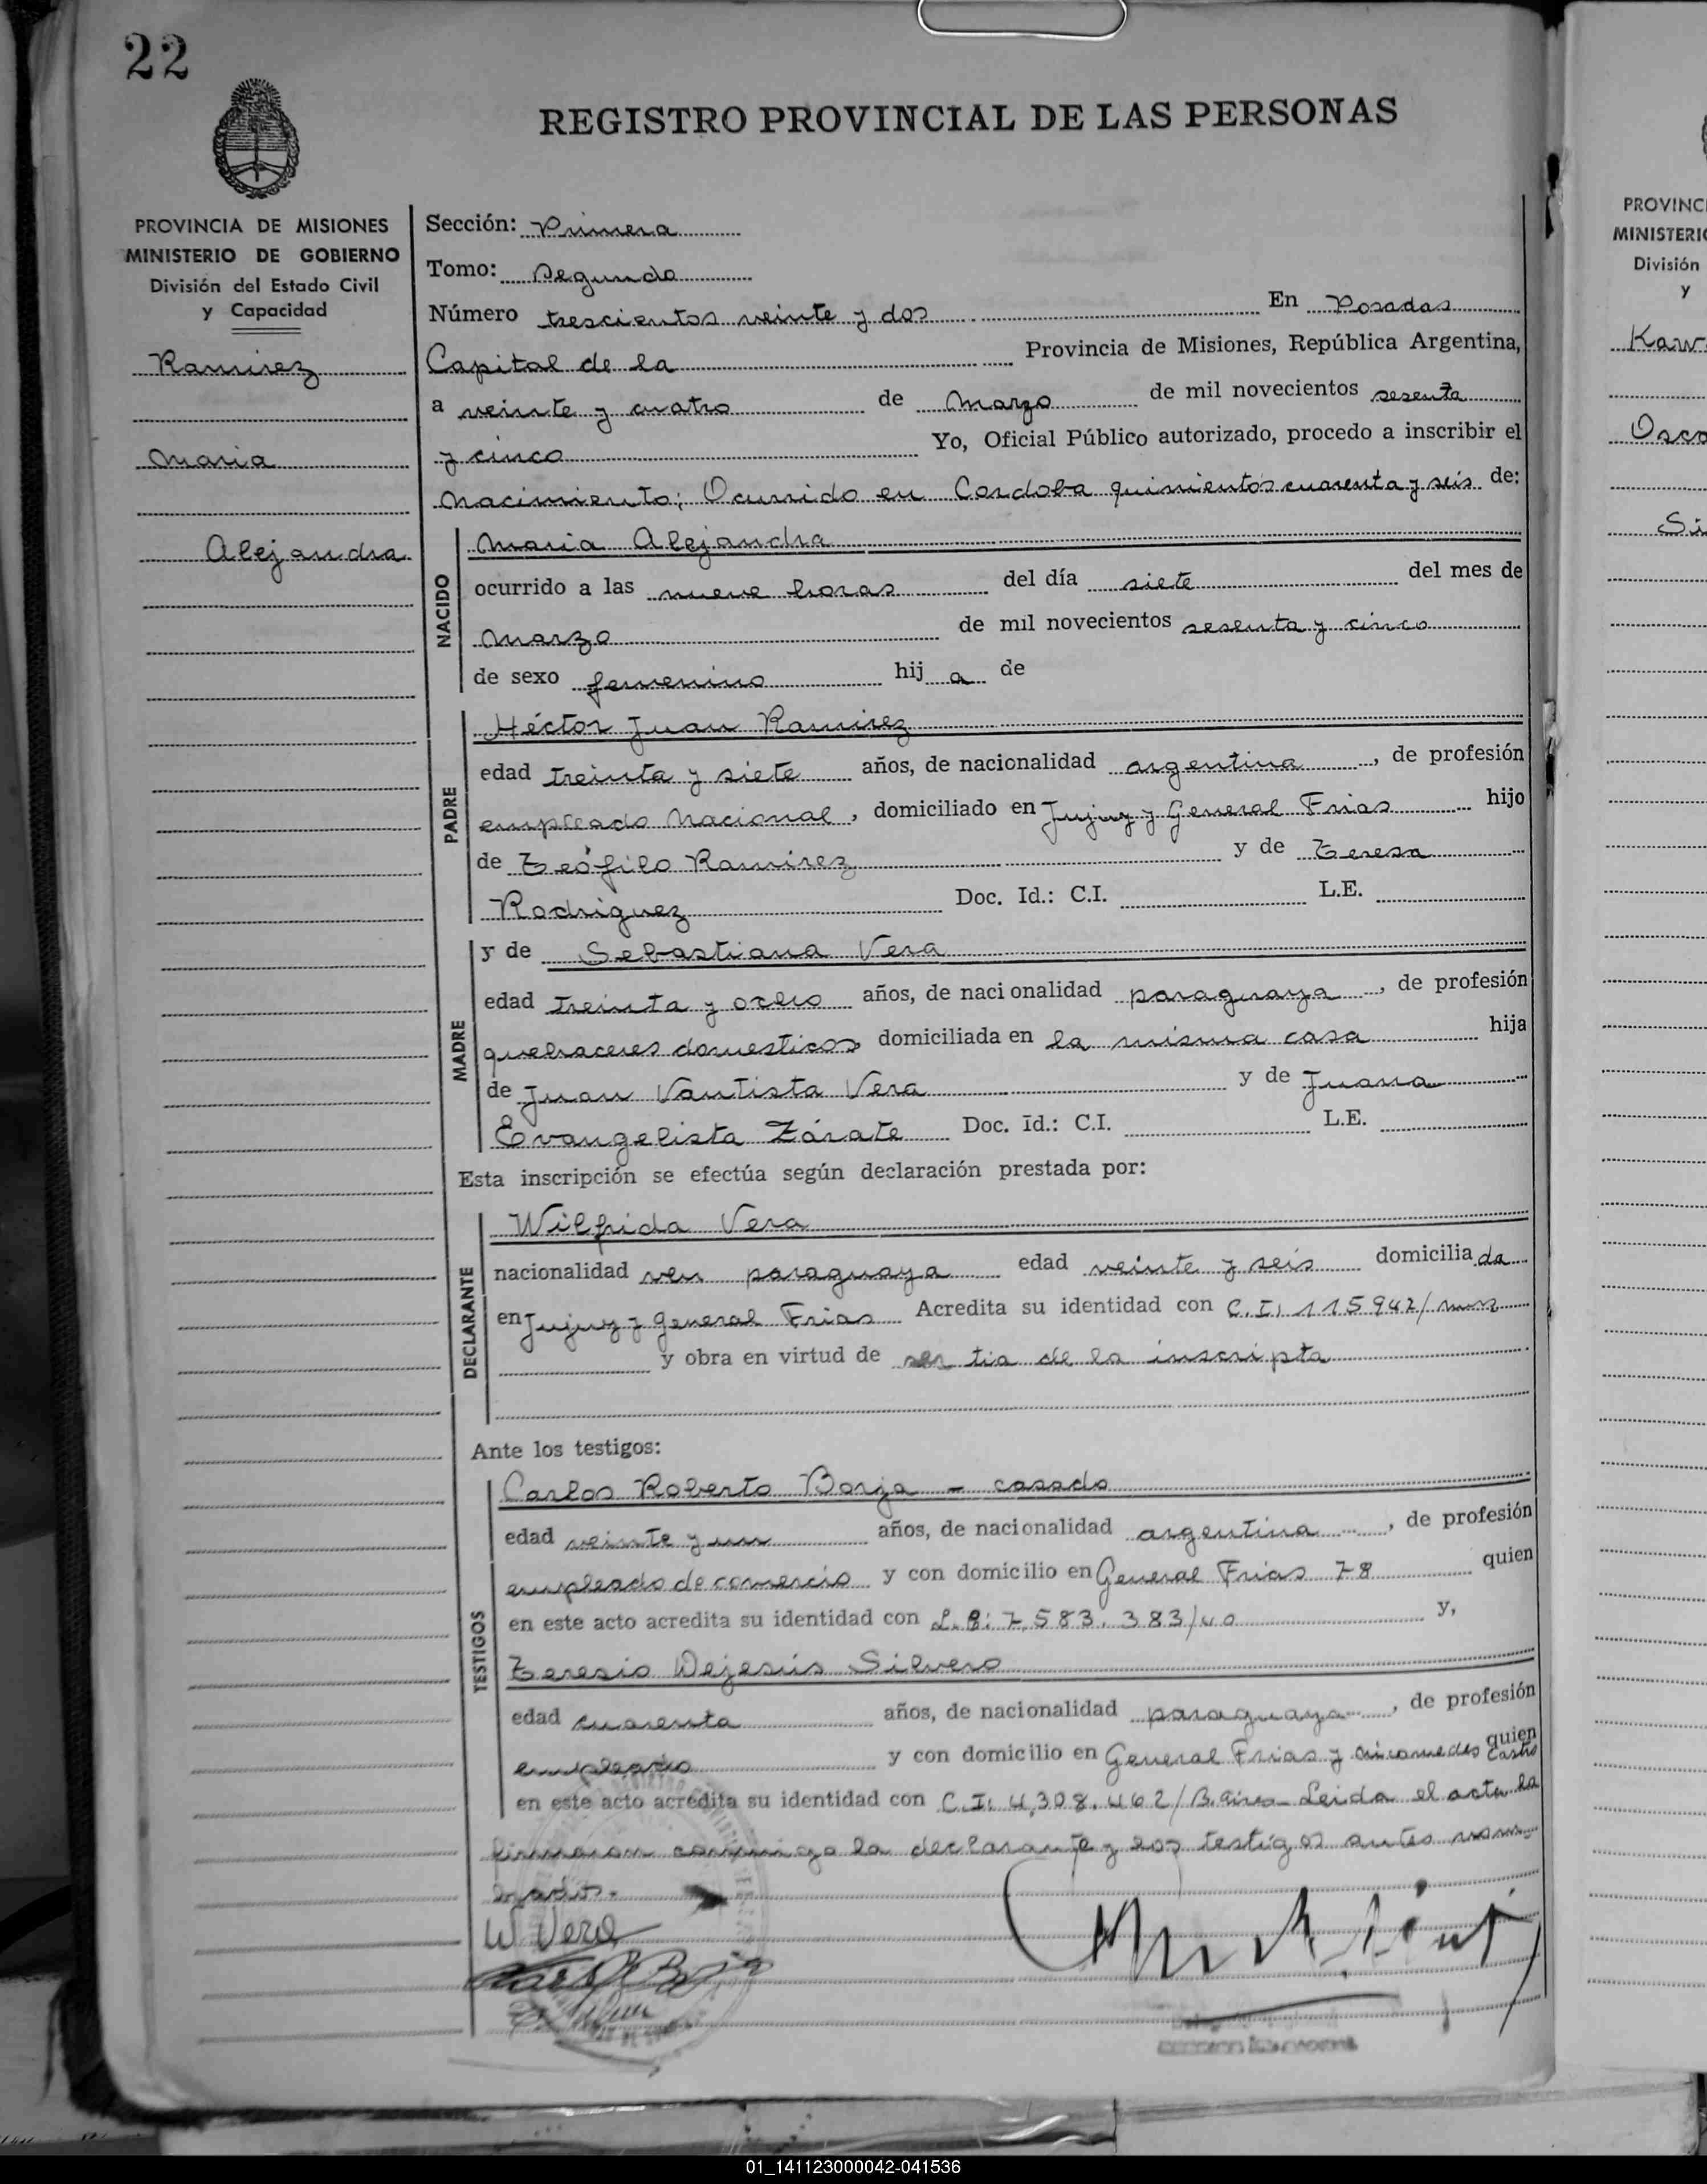 22
REGISTRO PROVINCIAL DE LAS PERSONAS
PROVINCIA DE MISIONES
MINISTERIO DE GOBIERNO
División del Estado Civil
y Capacidad
Ramirez
Maria
Alejandra
Sección: Primera
Tomo: Segundo
Número trescientos veinte y dos En Posadas
Capital de la Provincia de Misiones, República Argentina,
a veinte y cuatro de Marzo de mil novecientos sesenta
y cinco Yo, Oficial Público autorizado, procedo a inscribir el
Nacimiento; Ocurrido en Cordoba quinientos cuarenta y seis de:
NACIDO
Maria Alejandra
ocurrido a las nueve horas del día siete del mes de
Marzo de mil novecientos sesenta y cinco
de sexo femenino hij a de
PADRE
Héctor Juan Ramirez
edad treinta y siete años, de nacionalidad argentina, de profesión
empleado Nacional, domiciliado en Jujuy y General Frias hijo
de Teófilo Ramirez y de Teresa
Rodriguez Doc. Id.: C.I. L.E.
MADRE
y de Sebastiana Vera
edad treinta y ocho años, de nacionalidad paraguaya, de profesión
quehaceres domesticos domiciliada en la misma casa hija
de Juan Vautista Vera y de Juana
Evangelista Zárate Doc. Id.: C.I. L.E.
Esta inscripción se efectúa según declaración prestada por:
DECLARANTE
Wilfrida Vera
nacionalidad paraguaya edad veinte y seis domicilia da
en Jujuy y General Frias Acredita su identidad con C.I. 115942/
y obra en virtud de ser tia de la inscripta
Ante los testigos:
TESTIGOS
Carlos Roberto Borja - casado
edad veinte y un años, de nacionalidad argentina, de profesión
empleado de comercio y con domicilio en General Frias 78 quien
en este acto acredita su identidad con L.E: 7.583.383/40 y,
Teresio Dejesús Silvero
edad cuarenta años, de nacionalidad paraguaya, de profesión
empleado y con domicilio en General Frias y Nicomedes Castro quien
en este acto acredita su identidad con C.I. 4,308.462/B. Aires - Leida el acta la
firmaron conmigo la declarante y los testigos antes nom-
brados.-
W Vera
PROVINC
MINISTERI
División
y
Kaw
Osca
Si
01_141123000042-041536